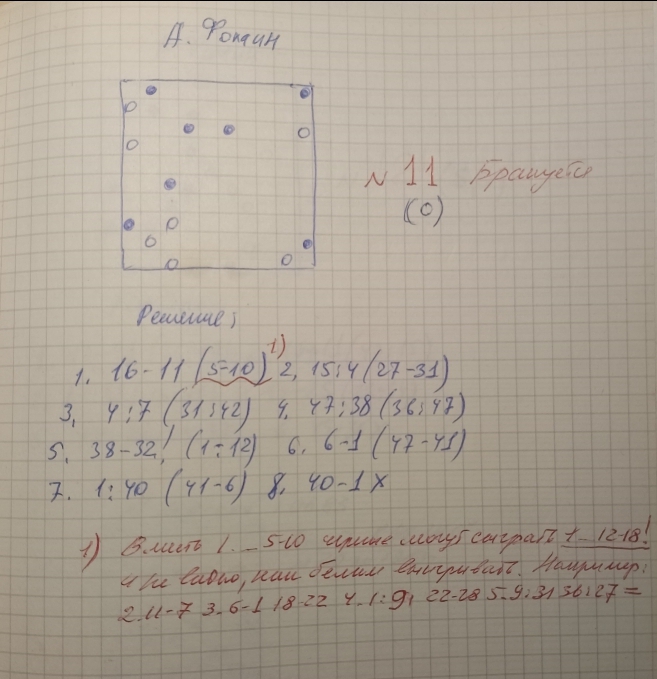 А. Фомин
N 11 Бракуется
(0)
Решение;
1. 16-11 (5-10) 1) 2. 15:4 (27-31)
3. 4:7 (31:42) 4. 47:38 (36:47)
5. 38-32! (1:12) 6. 6-1 (47-41)
7. 1:40 (41-6) 8. 40-1 X
1) Вместо 1... 5-10 черные могут сыграть 1... 12-18!
и не видно, как белым выигрывать. Например:
2. 11-7 3. 6-1 18-22 4. 1:9; 22-28 5. 9:31 36:27 =